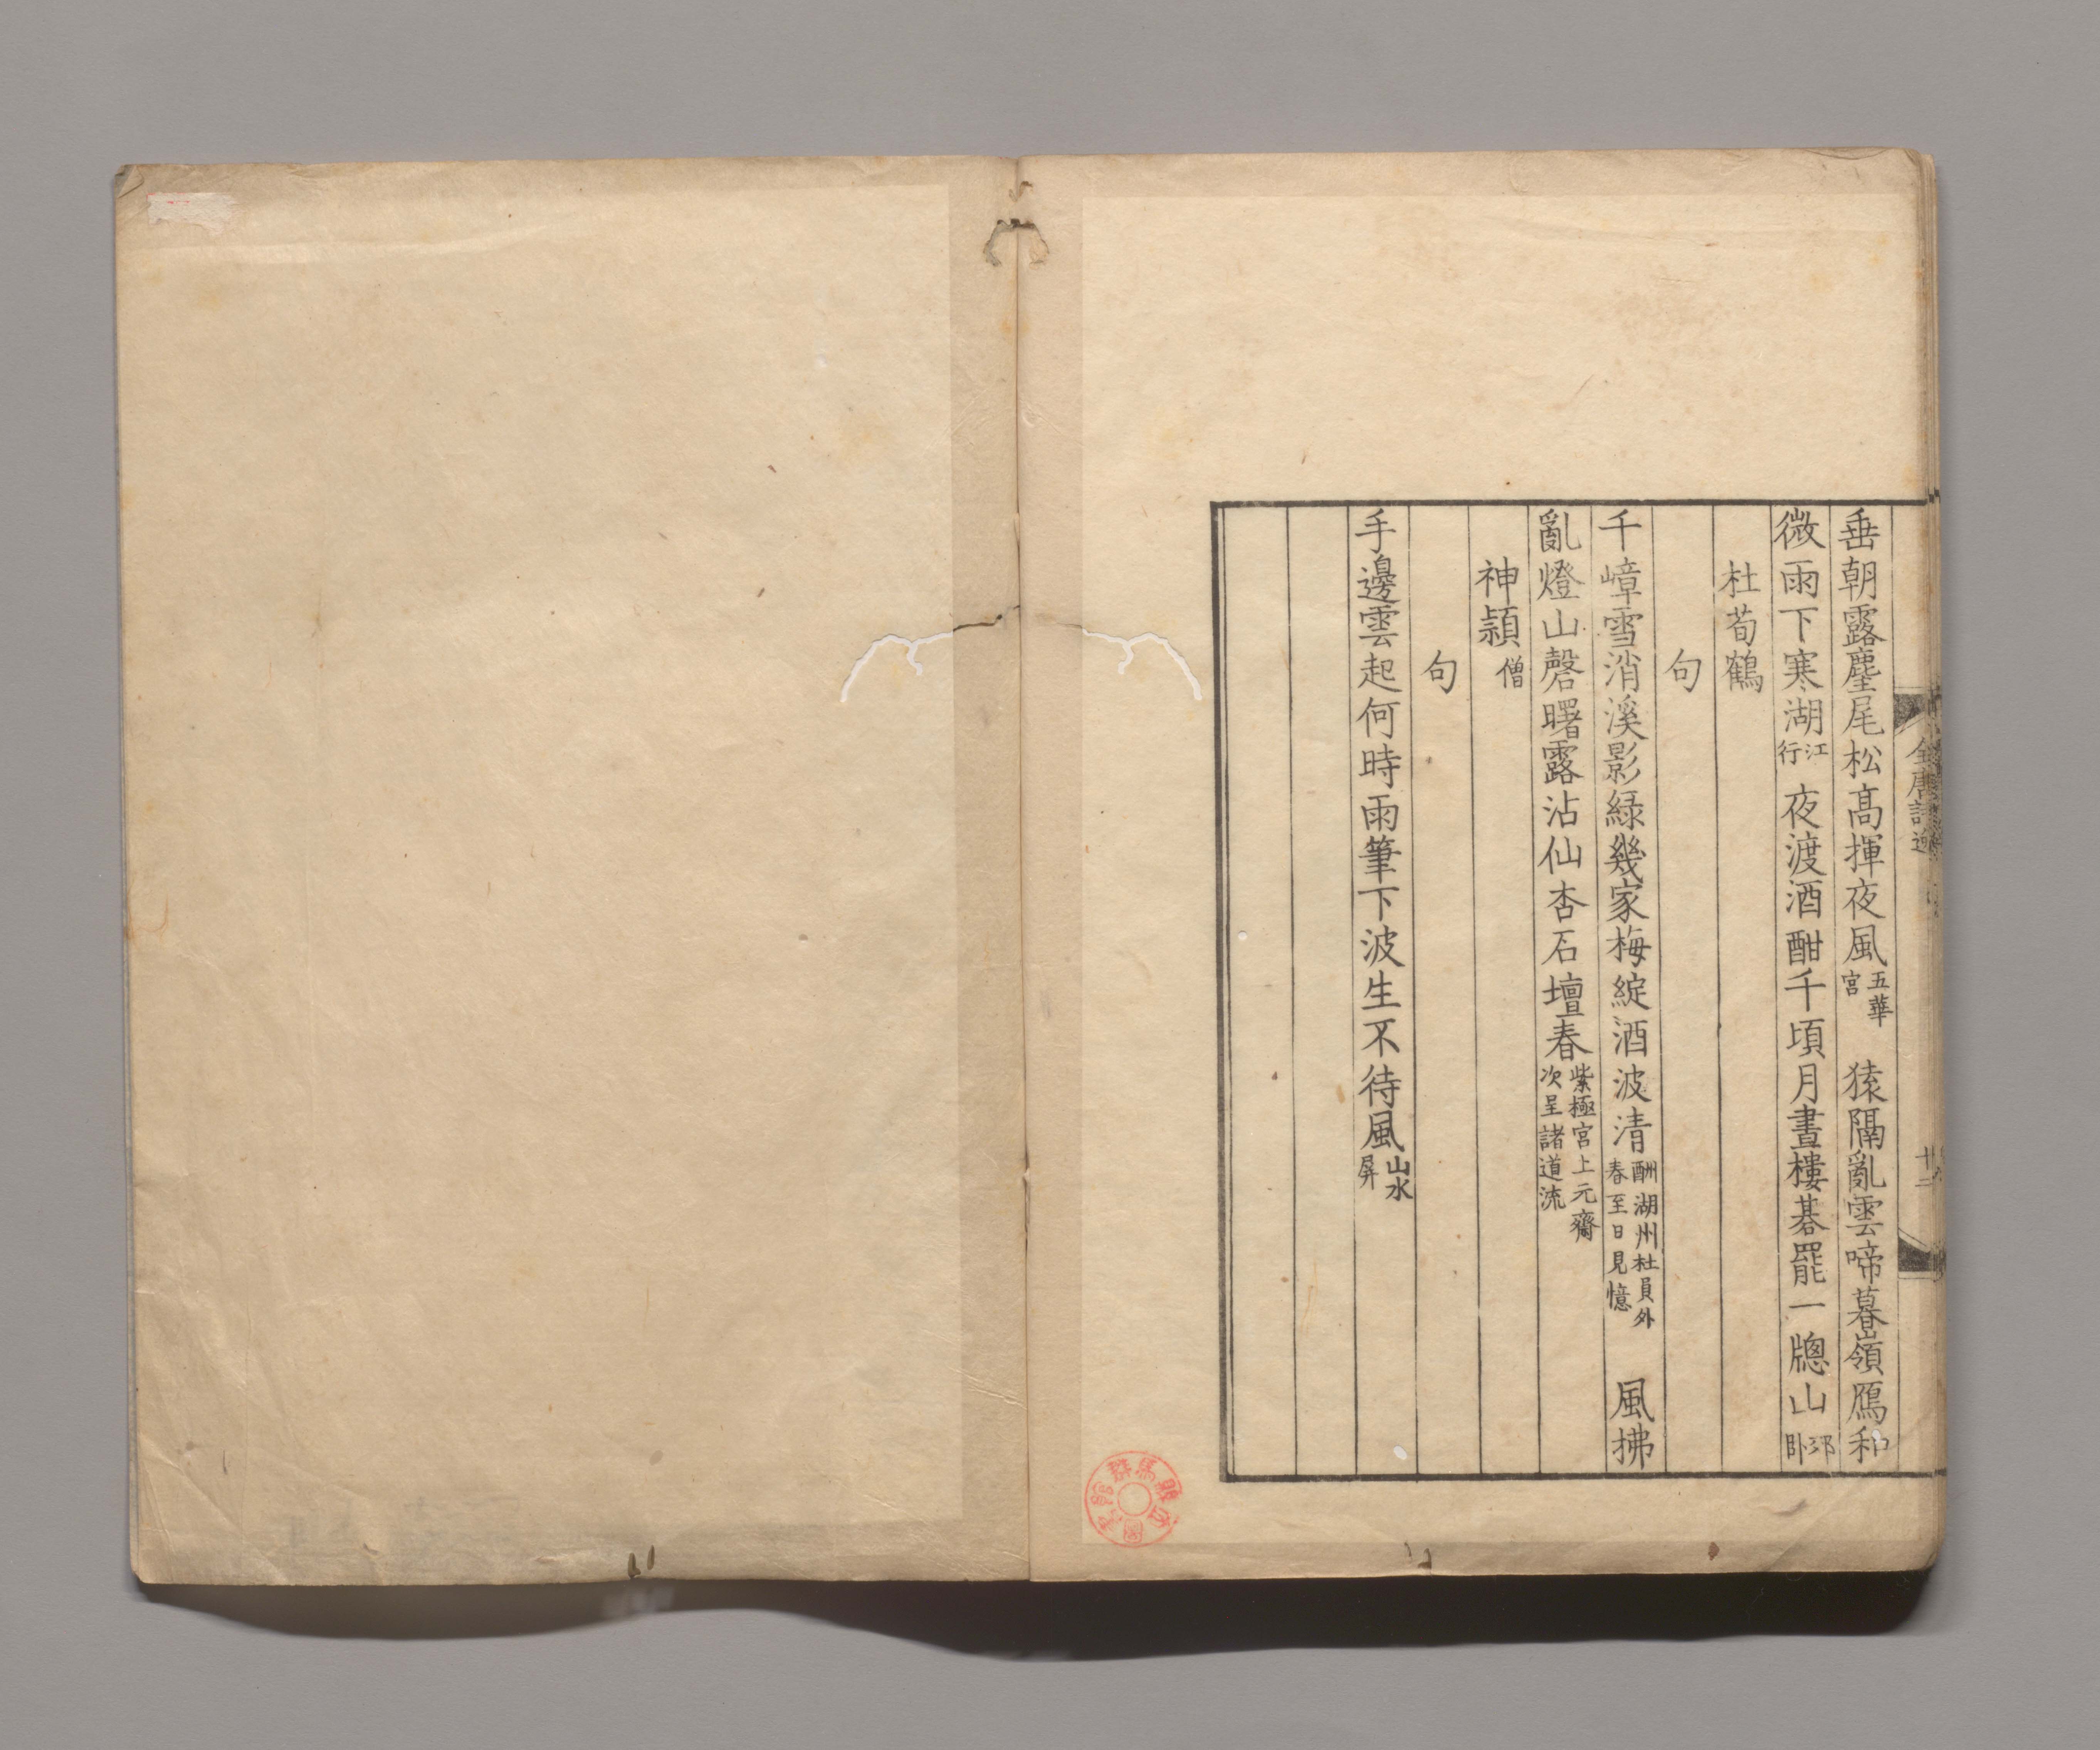 垂朝露麈尾松高揮夜風五華宮　猿隔亂雲啼暮嶺鴈和
微雨下寒湖江行　夜渡酒酣千頃月晝樓棊罷一牕山邛卧
杜荀鶴
句
千嶂雪消溪影綠幾家梅綻酒波清酬湖州杜員外春至日見憶　風拂
亂燈山磬曙露沾仙杏石壇春紫極宮上元齋次呈諸道流
神穎僧
句
手邊雲起何時雨筆下波生不待風山水屏
全唐詩逸
十二